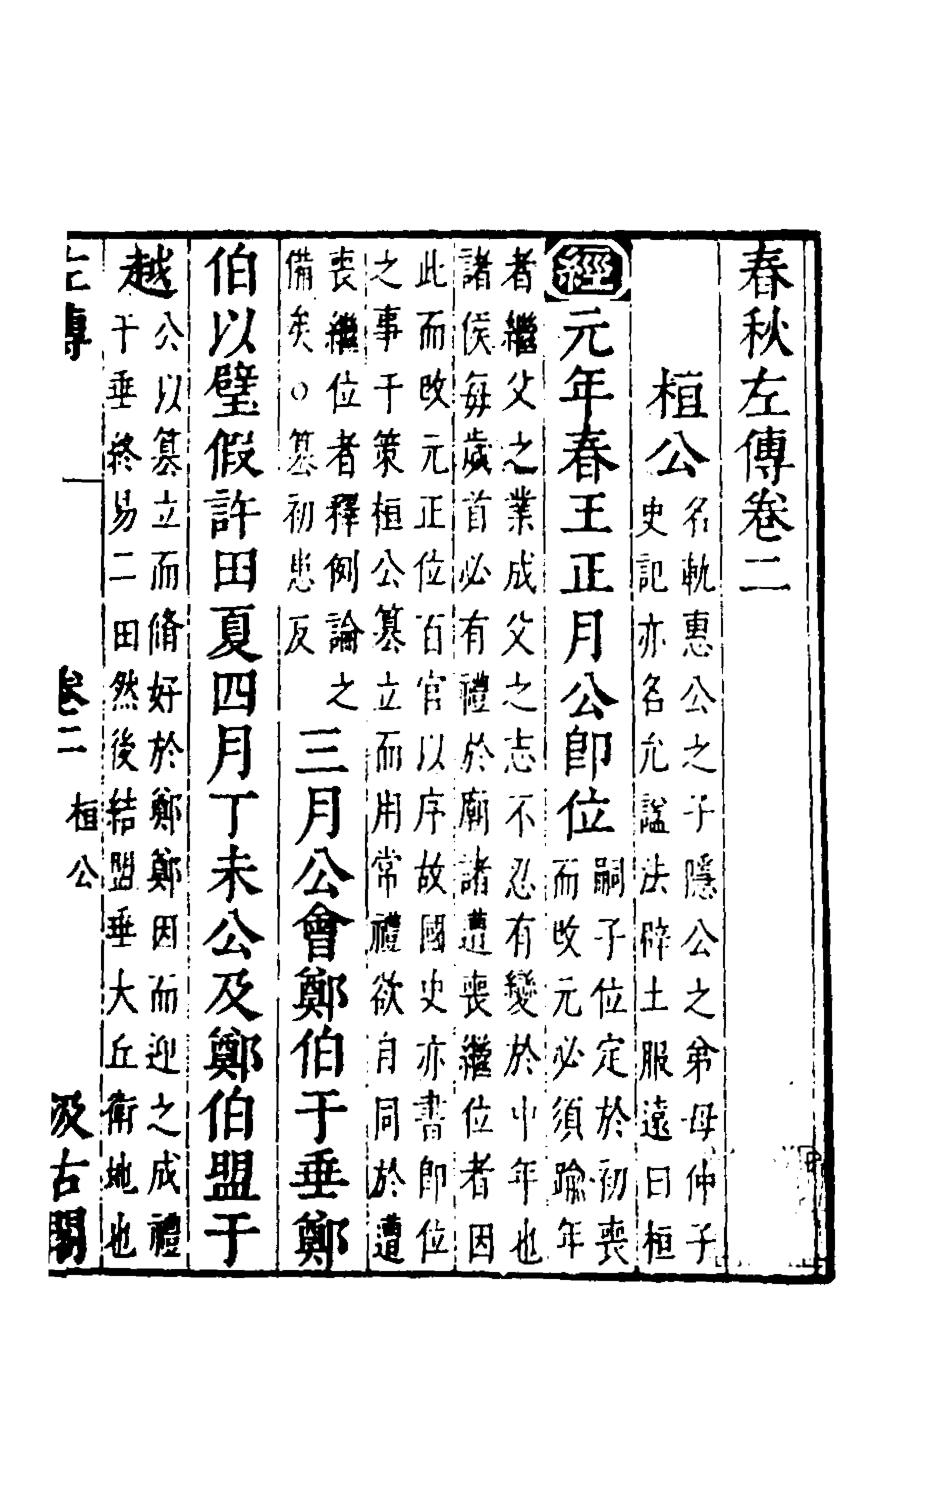 春秋左傳卷二
桓公
名軌惠公之子隱公之弟母仲子
史記亦名允諡法辟土服遠曰桓
經元年春王正月公卽位
嗣子位定於初喪
而改元必須踰年
者繼父之業成父之志不忍有變於中年也
諸侯每歲首必有禮於廟諸遭喪繼位者因
此而改元正位百官以序故國史亦書卽位
之事于策桓公簒立而用常禮欲自同於遭
喪繼位者釋例論之
備矣○簒初患反
三月公會鄭伯于垂鄭
伯以璧假許田夏四月丁未公及鄭伯盟于
越
公以簒立而脩好於鄭鄭因而迎之成禮
于垂終易二田然後結盟垂犬丘衛地也
左傳 卷二 桓公 汲古閣